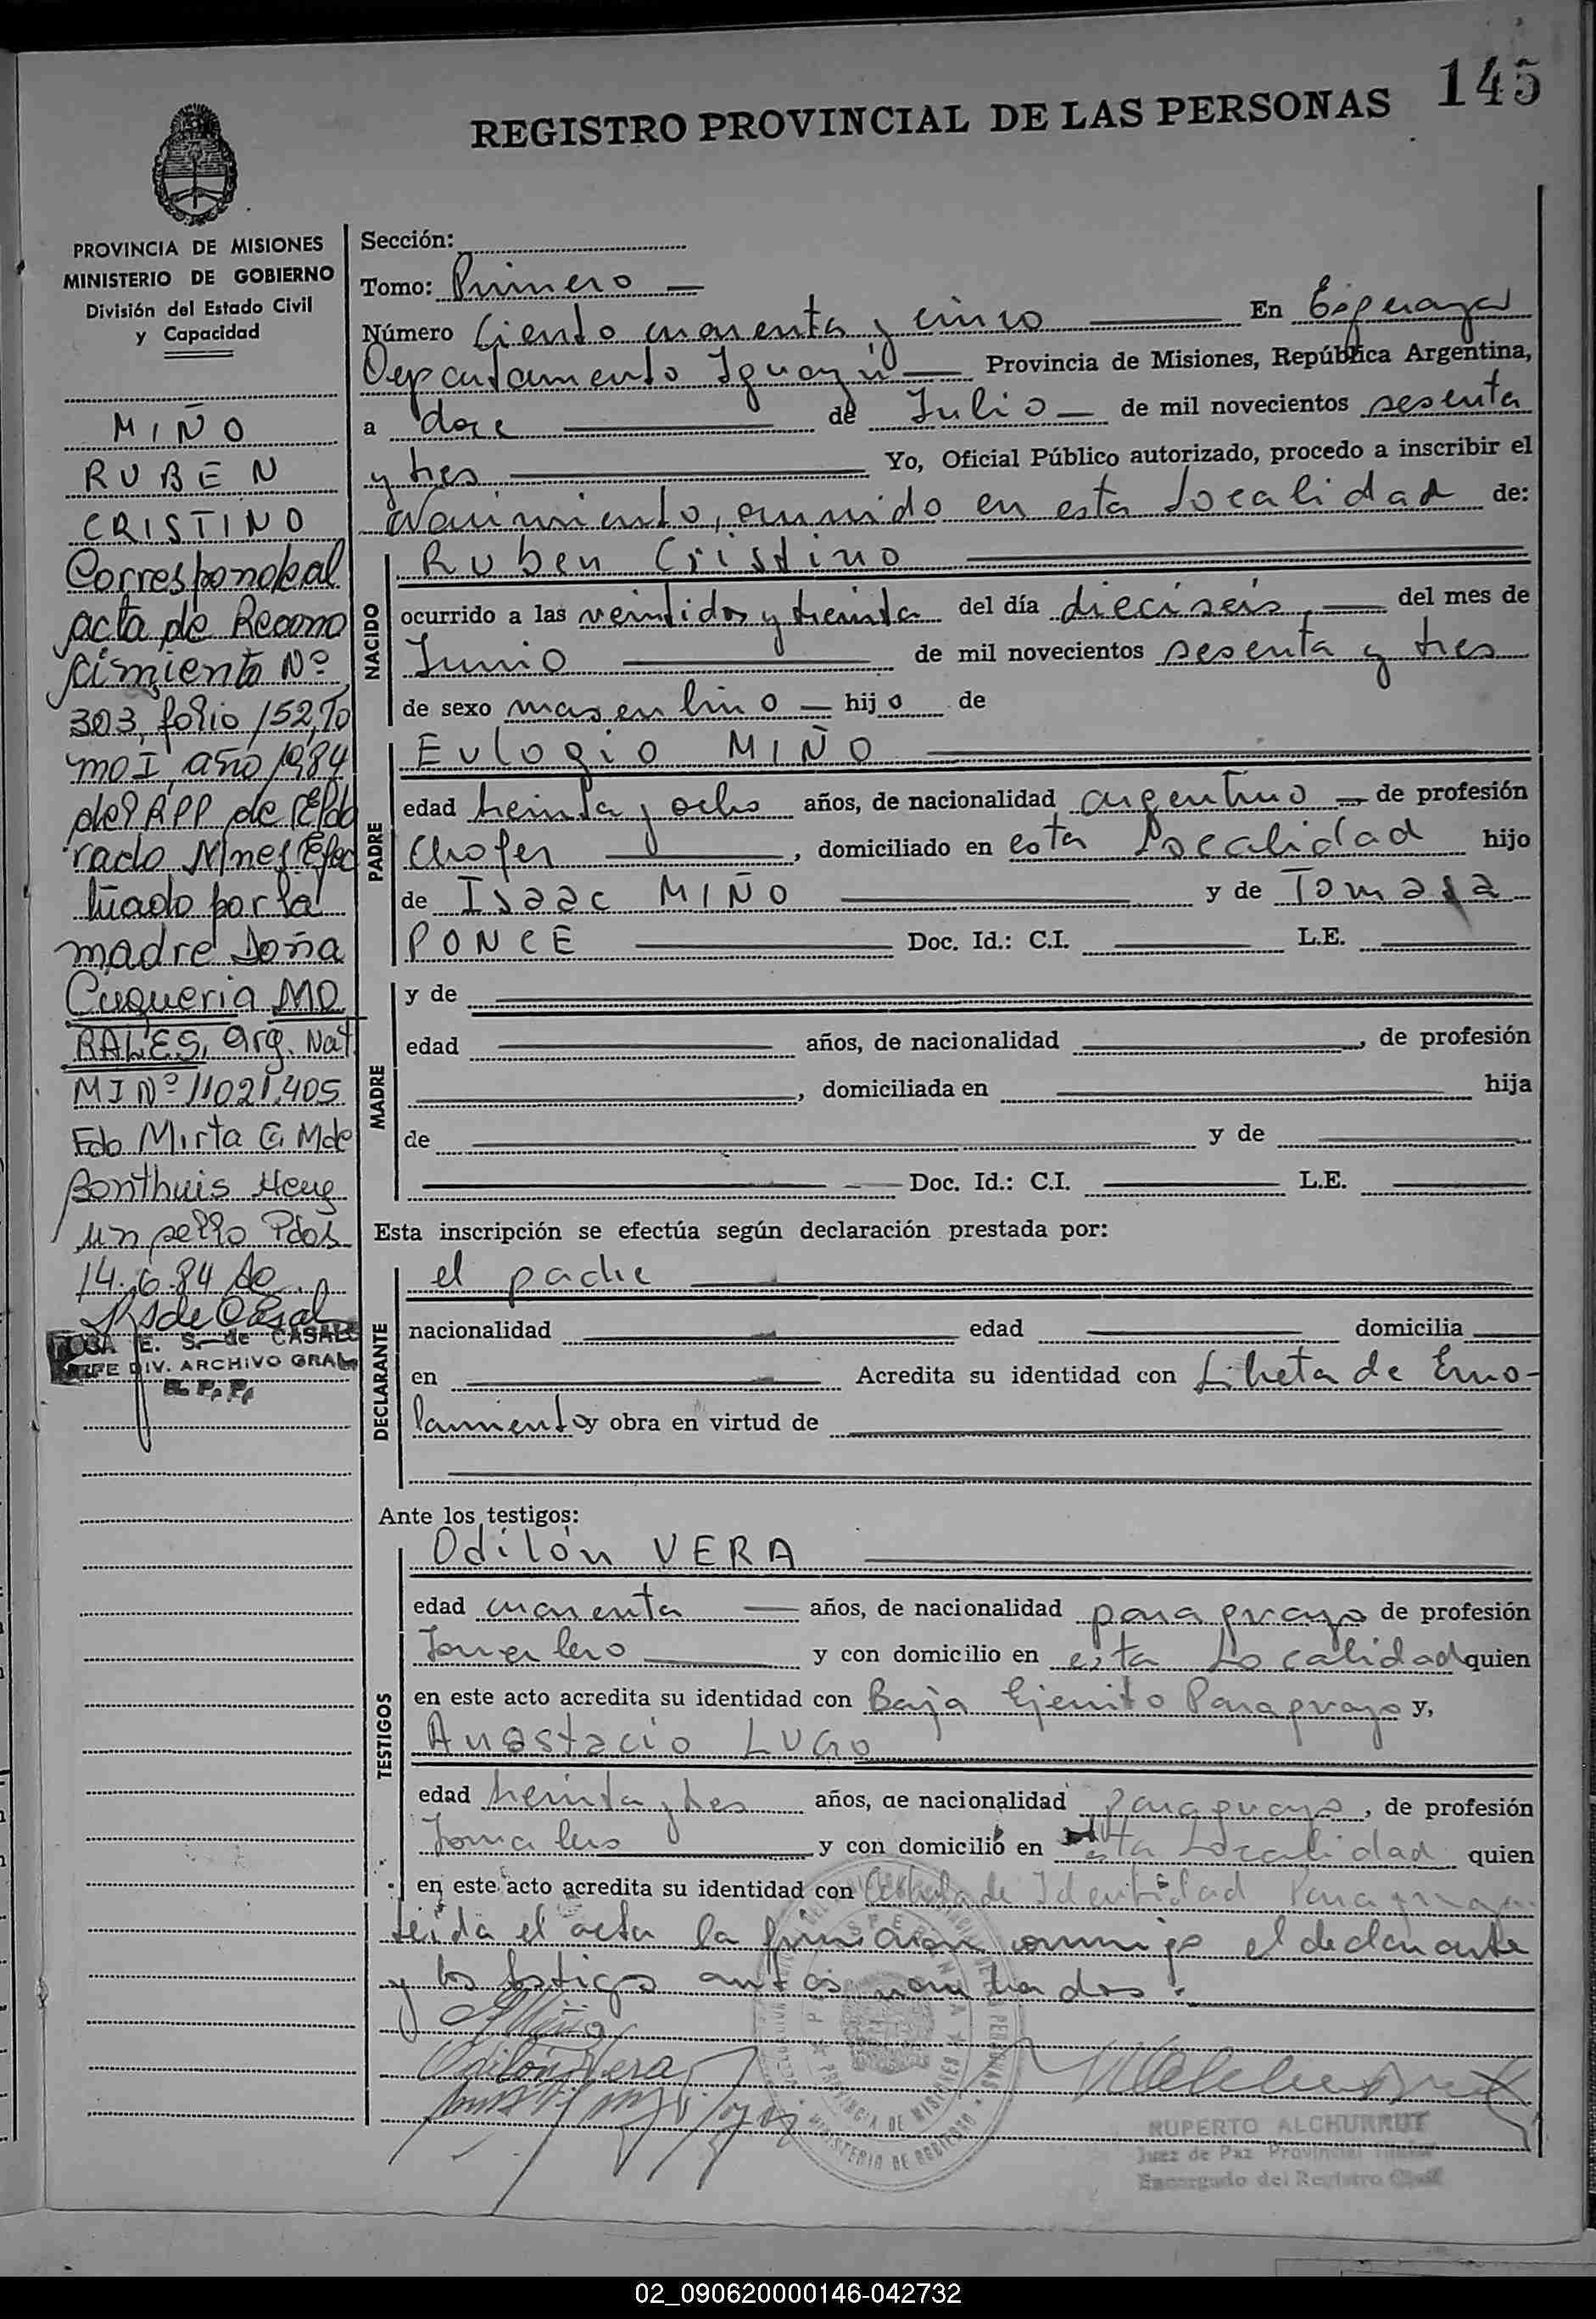 145
REGISTRO PROVINCIAL DE LAS PERSONAS
PROVINCIA DE MISIONES
MINISTERIO DE GOBIERNO
División del Estado Civil
y Capacidad
MIÑO
RUBEN
CRISTINO
Corresponde al
acta de Recono
cimiento Nº
303, folio 152, To
mo I, año 1984
del RPP de
rado Nines Efec
tuado por la
madre Doña
MO
RALES, Arg. Nat.
MI Nº 11021.405
Fdo Mirta G. M de
Bonthuis Hay
un sello Pdas
14.6.84
ROSA E. S. de CASALS
JEFE DIV. ARCHIVO GRAL.
R. P. P.
Sección:
Tomo: Primero —
Número Ciento cuarenta y cinco — En Esperanza
Departamento Iguazú — Provincia de Misiones, República Argentina,
a doce — de Julio — de mil novecientos sesenta
y tres — Yo, Oficial Público autorizado, procedo a inscribir el
Nacimiento, ocurrido en esta Localidad de:
NACIDO
Ruben Cristino
ocurrido a las veintidos y treinta del día dieciseis, — del mes de
Junio — de mil novecientos sesenta y tres
de sexo masculino — hijo de
PADRE
Eulogio MIÑO
edad treinta y ocho años, de nacionalidad argentino — de profesión
Chofer —, domiciliado en esta Localidad hijo
de Isaac MIÑO — y de Tomasa
PONCE — Doc. Id.: C.I. — L.E. —
MADRE
y de —
edad — años, de nacionalidad —, de profesión
—, domiciliada en — hija
de — y de —
— Doc. Id.: C.I. — L.E. —
Esta inscripción se efectúa según declaración prestada por:
DECLARANTE
el padre —
nacionalidad — edad — domicilia —
en — Acredita su identidad con Libreta de Enro-
lamiento y obra en virtud de —
Ante los testigos:
TESTIGOS
Odilón VERA —
edad cuarenta — años, de nacionalidad paraguayo de profesión
Jornalero — y con domicilio en esta Localidad quien
en este acto acredita su identidad con Baja Ejercito Paraguayo y,
Anastacio LUGO
edad treinta y tres años, de nacionalidad Paraguayo, de profesión
Jornalero — y con domicilio en esta Localidad quien
en este acto acredita su identidad con Cedula de Identidad Paraguaya.
Leida el acta la firman conmigo el declarante
y los testigos antes nombrados. —
Odilon Vera
PROVINCIA DE MISIONES
MINISTERIO DE GOBIERNO
RUPERTO ALCHURRUT
Juez de Paz Provincial Titular
Encargado del Registro Civil
02_090620000146-042732